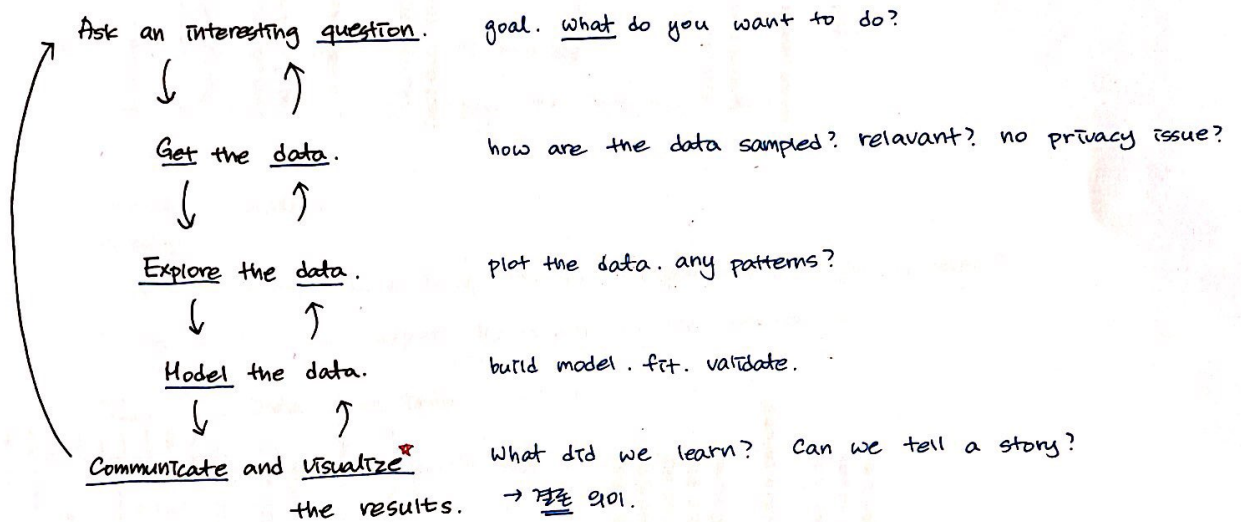 Ask an interesting question. goal. what do you want to do?
Get the data. how are the data sampled? relavant? no privacy issue?
Explore the data. plot the data. any patterns?
Model the data. build model. fit. validate.
Communicate and visualize* What did we learn? Can we tell a story?
the results. → 결론 의미.